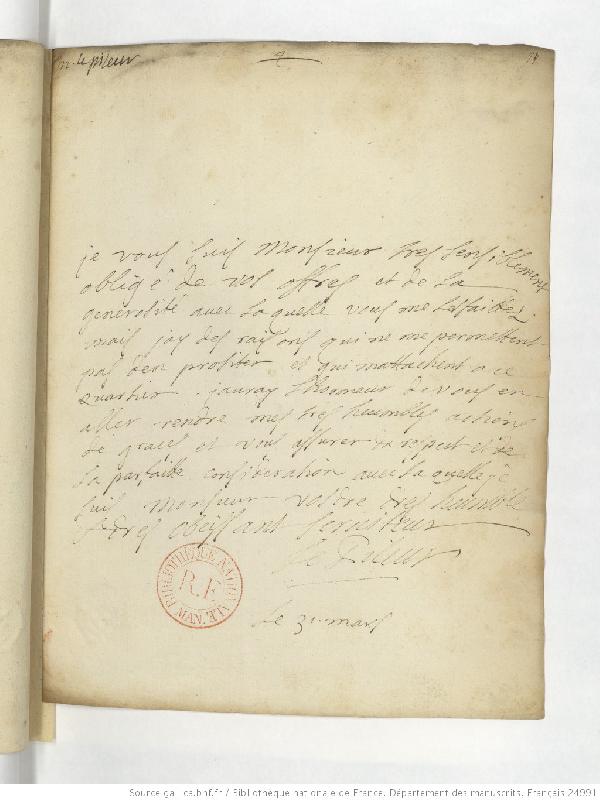 m. le pileur
je vous suis Monsieur tres sensiblement
obligé de vos offres et de la
generosité avec laquelle vous me les faittes
mais jay des raisons qui ne me permettent
pas den profiter et qui mattachent a ce
quartier. jauray lhonneur de vous en
aller rendre mes tres heumbles actions
de graces et vous assurer du respect et de
la parfaite consideration avec laquelle je
suis Monsieur vostre tres heumble
et tres obeissant serviteur
le Pileur
BIBLIOTHEQUE NATIONALE MAN.
R.F.
le 31 mars
Source gallica.bnf.fr / Bibliothèque nationale de France. Département des manuscrits. Français 24991